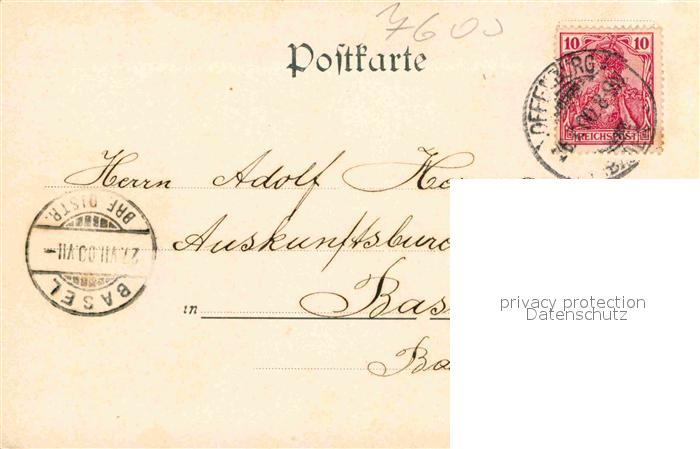 7600
Postkarte
10 10
REICHSPOST
OFFENBURG
Herrn Adolf
Auskunftsburo
in Bas
Ba
BASEL
27.VII.00.VII-
BRF. DISTR.
privacy protection
Datenschutz